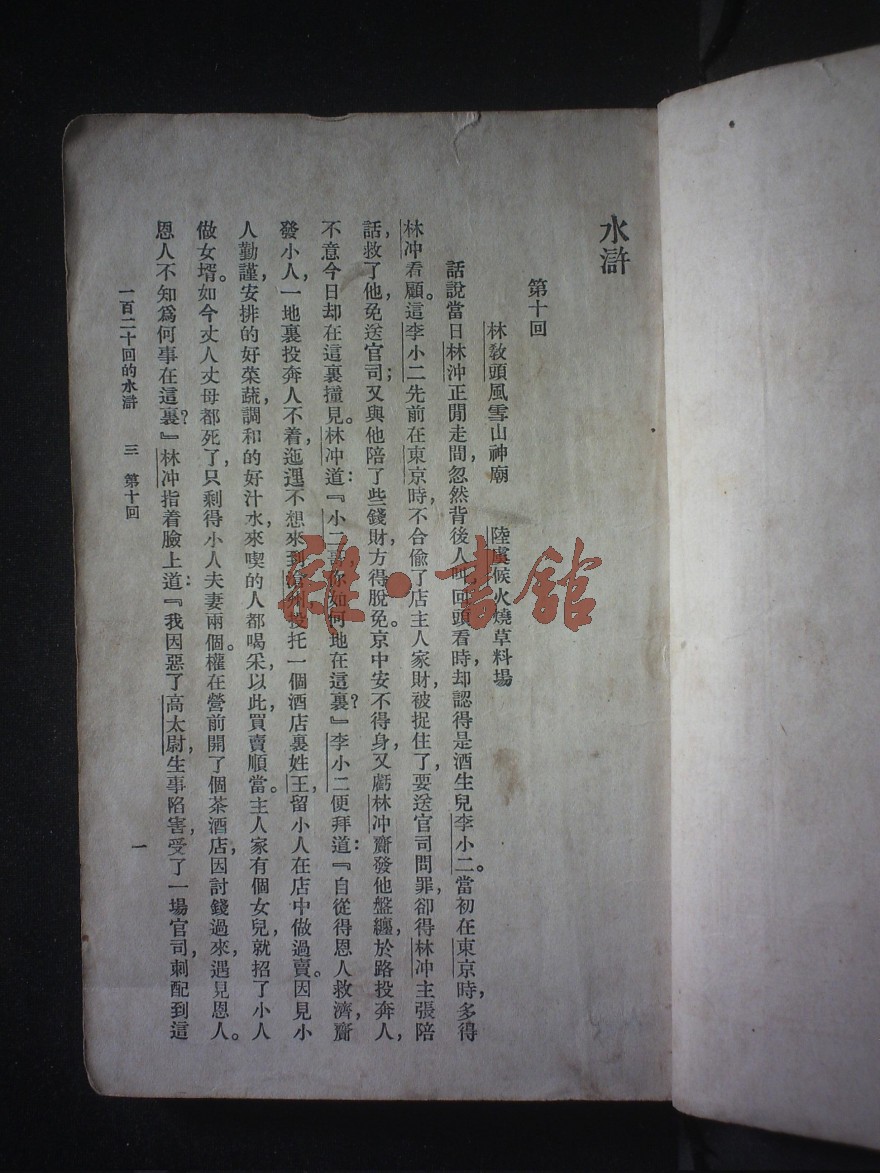 水滸
第十回
林教頭風雪山神廟　陸虞候火燒草料場
話說當日林沖正閒走間，忽然背後人叫，回頭看時，却認得是酒生兒李小二。當初在東京時，多得
林冲看顧。這李小二先前在東京時，不合偸了店主人家財，被捉住了，要送官司問罪，卻得林冲主張陪
話，救了他，免送官司；又與他陪了些錢財，方得脫免。京中安不得身，又虧林冲齎發他盤纏，於路投奔人，
不意今日却在這裏撞見。林冲道：『小二哥，你如何地在這裏？』李小二便拜道：『自從得恩人救濟，齎
發小人，一地裏投奔人不着，迤邐不想來到滄州，投托一個酒店裏姓王，留小人在店中做過賣。因見小
人勤謹，安排的好菜蔬，調和的好汁水，來喫的人都喝采，以此，買賣順當。主人家有個女兒，就招了小人
做女壻。如今丈人丈母都死了，只剩得小人夫妻兩個。權在營前開了個茶酒店，因討錢過來，遇見恩人。
恩人不知爲何事在這裏？』林冲指着臉上道：『我因惡了高太尉，生事陷害，受了一場官司，刺配到這
一百二十回的水滸　三　第十回　一
雜·書館